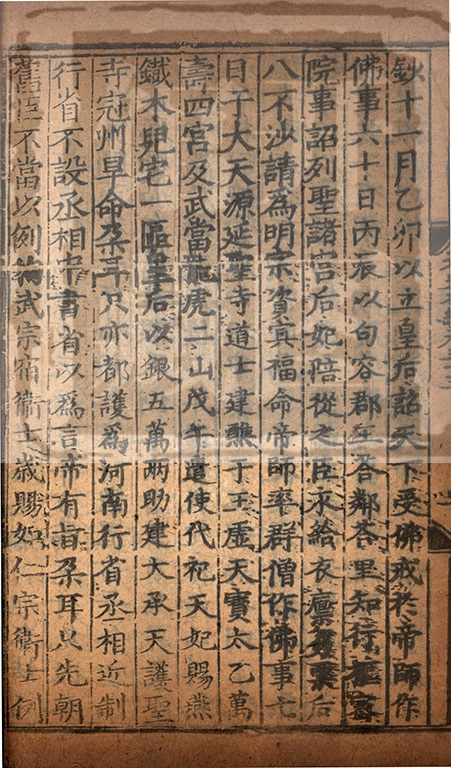 鈔十一月乙卯以立皇后詔天下受佛戒於帝師作
佛事六十日丙辰以句容郡王答鄰答里知行樞密
院事詔列聖諸宮后妃陪從之臣求給衣廩芻粟后
八不沙請為明宗資冥福命帝師率群僧作佛事七
日于大天源延聖寺道士建醮于玉虛天寶太乙萬
壽四宮及武當龍虎二山戊午遣使代祀天妃賜燕
鐵木兒宅一區皇后以銀五萬兩助建大承天護聖
寺冠州旱命朶耳只亦都護為河南行省丞相近制
行省不設丞相中書省以為言帝有旨朶耳只先朝
舊臣不當以例拘武宗宿衛士歲賜如仁宗衛士例